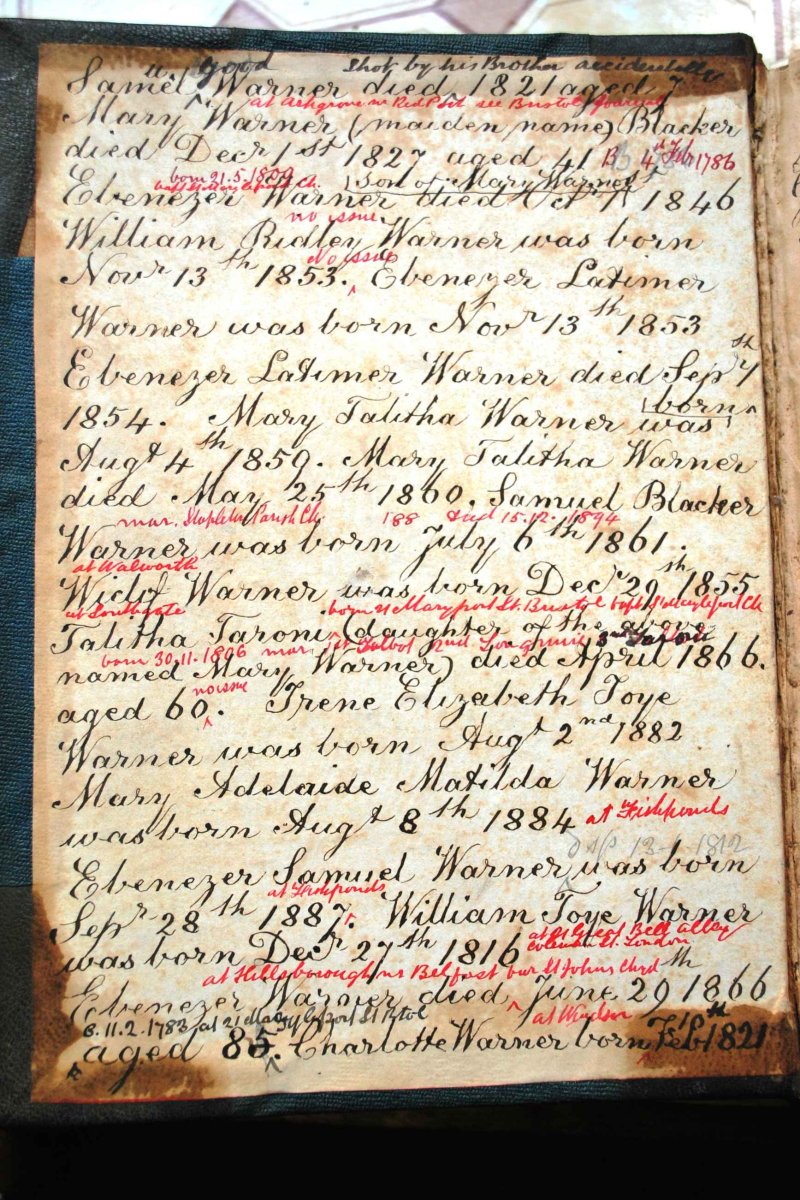 good shot by his Brother accidentally
Samel Warner died 1821 aged 7
at Ashgrove nr Red Post see Bristol Journal
Mary Warner (maiden name) Blacker
died Decr 1st 1827 aged 41 B 4th Feb 1786
born 21.5.1809
(Son of Mary Warner
Ebenezer Warner died Octr 1846
no issue
William Ridley Warner was born
No issue
Novr 13th 1853. Ebenezer Latimer
Warner was born Novr 13th 1853
Ebenezer Latimer Warner died Sepr 7th
born
1854. Mary Talitha Warner was
Augt 4th 1859. Mary Talitha Warner
died May 25th 1860. Samuel Blacker
mar. Stapleton Parish Ch. 188 died 15.12.1894
Warner was born July 6th 1861.
at Walworth
Wiclif Warner was born Decr 29th 1855
at Southgate born 21 Maryport St. Bristol bapt St Maryleport Ch
Talitha Taroni (daughter of the above
born 30.11.1806 mar 1st Talbot 2nd 3rd Taroni
named Mary Warner) died April 1866.
no issue
aged 60. Irene Elizabeth Toye
Warner was born Augt 2nd 1882
Mary Adelaide Matilda Warner
was born Augt 8th 1884 at Fishponds
dsp 13 1812
Ebenezer Samuel Warner was born
at Fishponds
Sepr 28th 1887. William Toye Warner
at Great Bell Alley
Coleman St. London
was born Decr 27th 1816
at Hillsborough nr Belfast bur St Johns Chyd
Ebenezer Warner died, June 29th 1866
B. 11.2.1783 at 21 Maryleport St Bstol at Windsor
aged 85. Charlotte Warner born Feb 1821